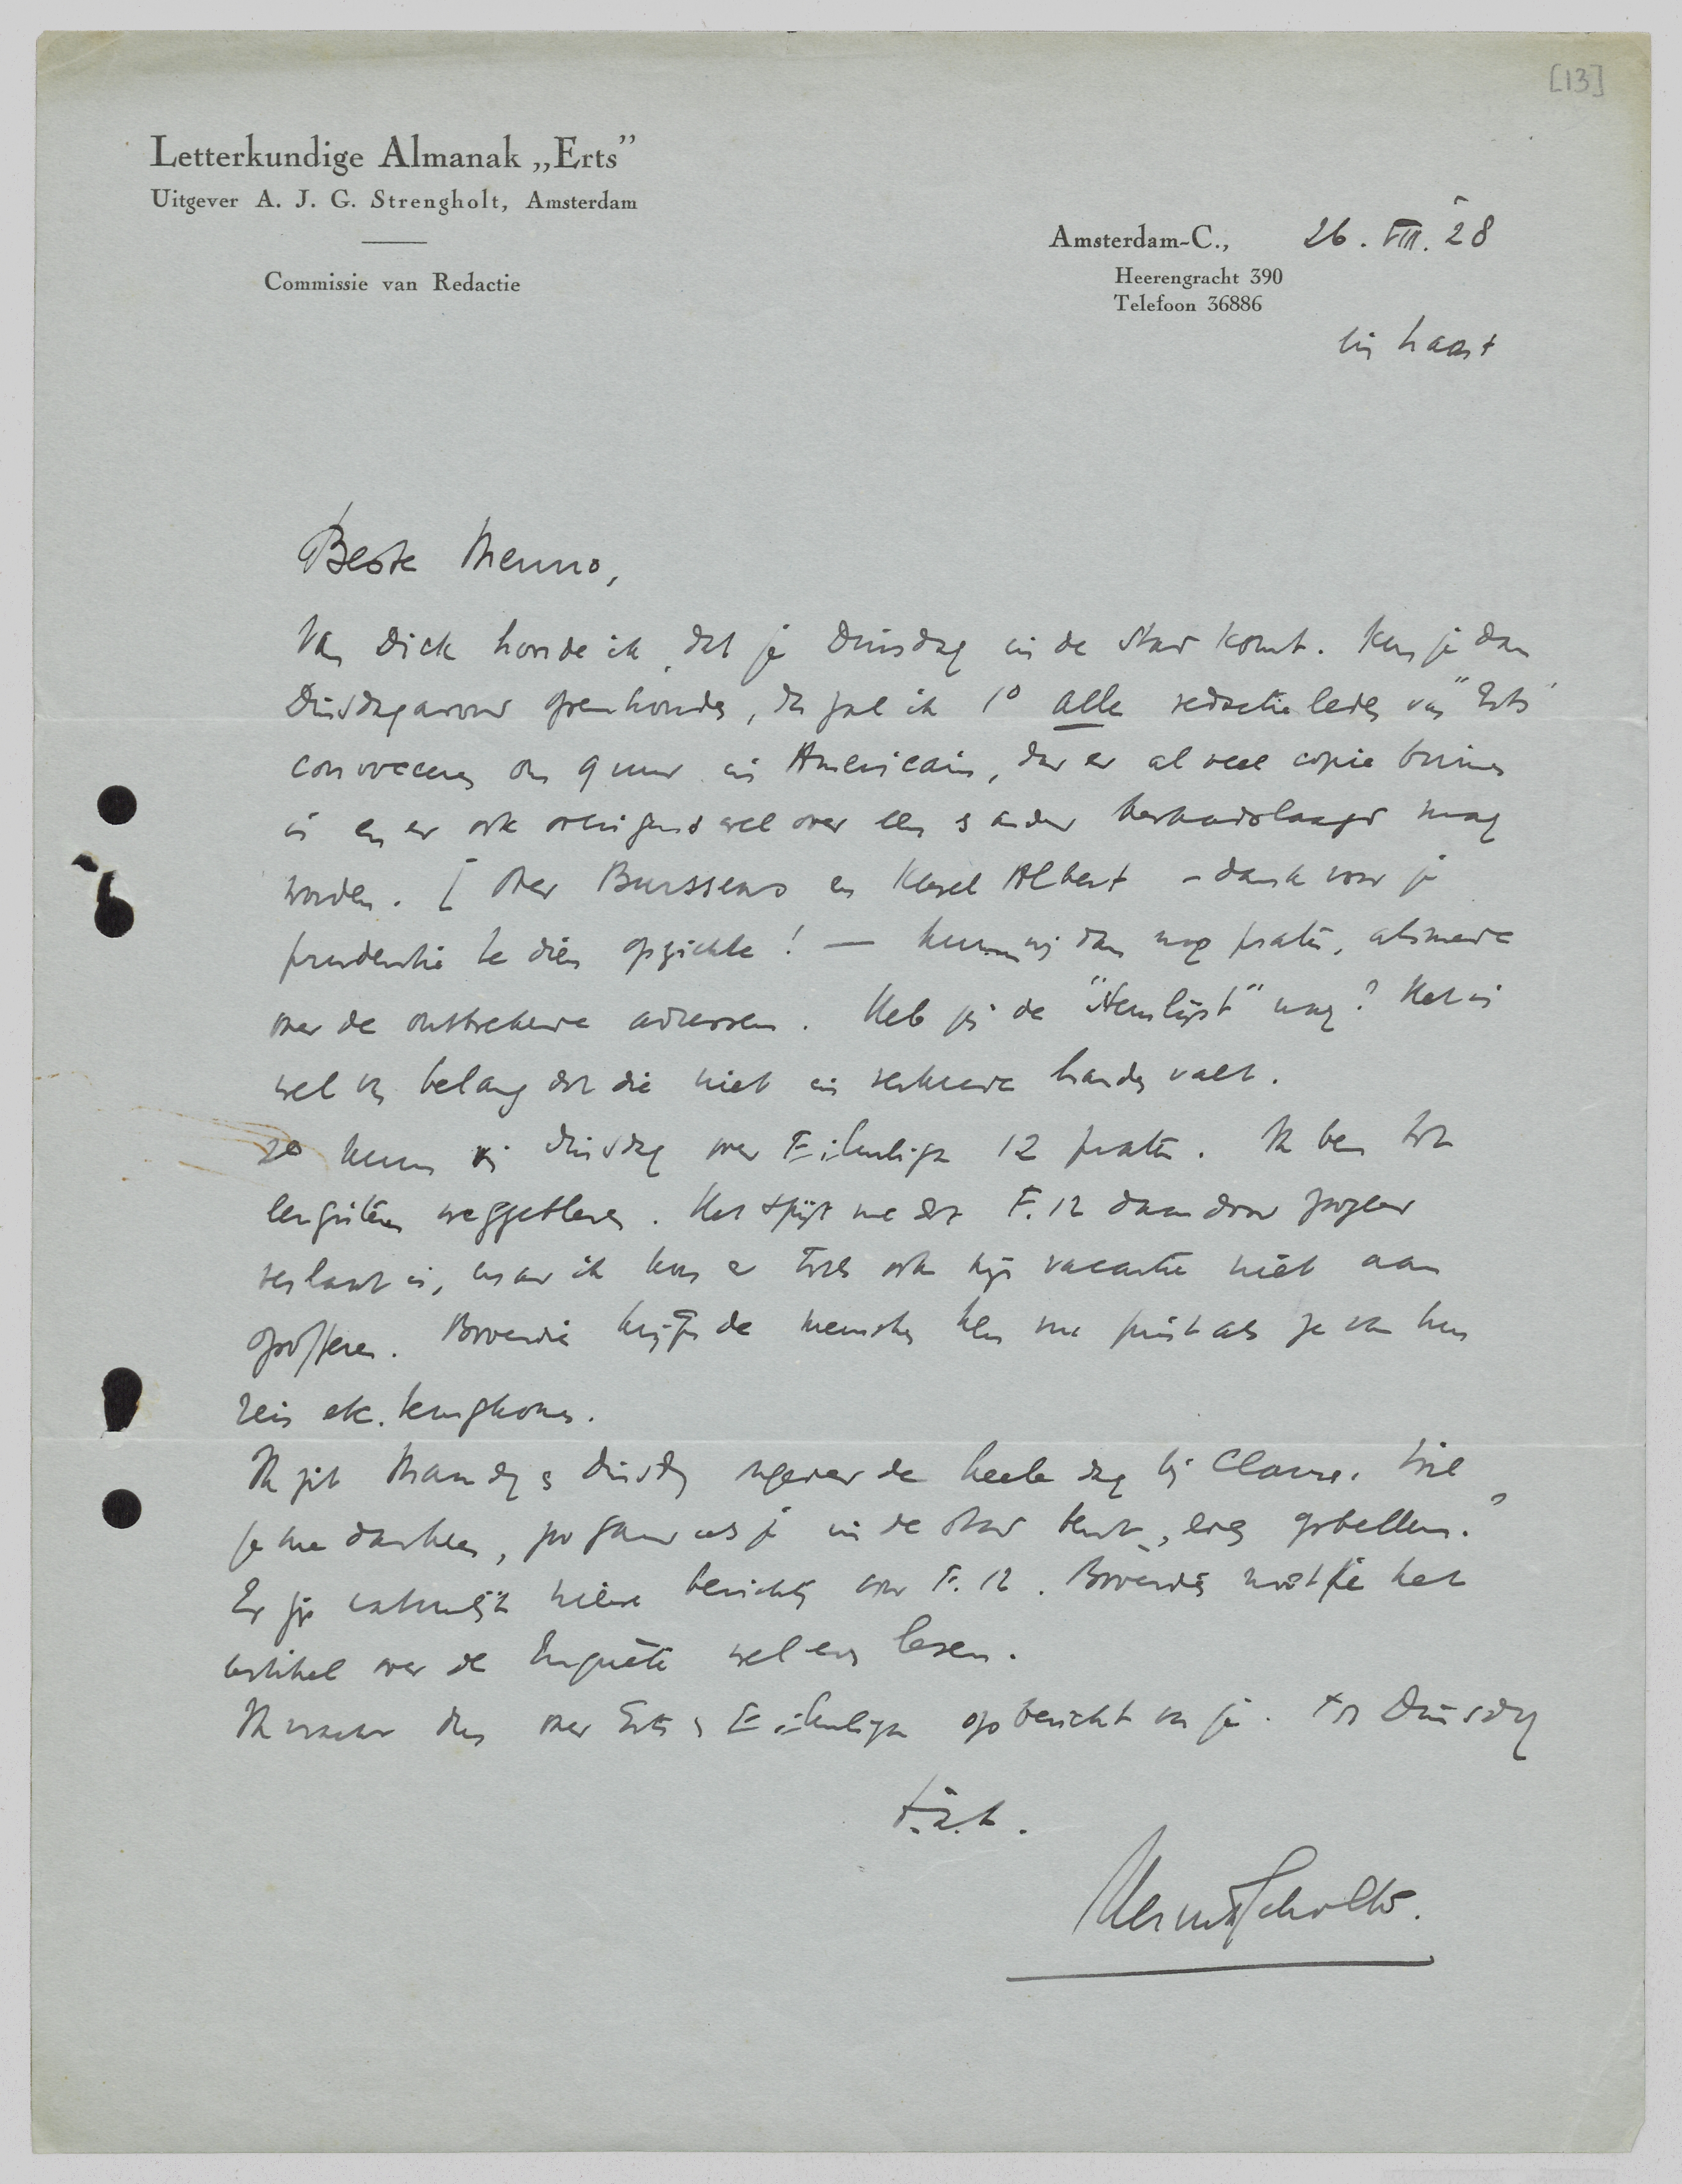 [13]
Letterkundige Almanak „Erts”
Uitgever A. J. G. Strengholt, Amsterdam
Commissie van Redactie
Amsterdam-C., 26. VIII. '28
Heerengracht 390
Telefoon 36886
in haast
Beste Menno,
Van Dick hoorde ik, dat je Dinsdag in de stad komt. Kun je dan
Dinsdagavond openhouden, dan zal ik 1° alle redactieleden van "Erts"
convoceeren om 9 uur in Americain, daar er al veel copie binnen
is en er ook overigens wel over een & ander beraadslaagd mag
worden. [ Over Burssens en Karel Albert – dank voor je
prudentie te dien opzichte! — kunnen wij dan nog praten, alsmede
over de ontbrekende adressen. Heb jij de "stemlijst" nog? Het is
wel van belang dat die niet in verkeerde handen valt.
2° kunnen wij Dinsdag over Filmliga 12 praten. Ik ben tot
weggebleven. Het spijt me dat F. 12 daardoor zoozeer
verlaat is, maar ik kon er toch ook mijn vacantie niet aan
opofferen. Bovendien krijgen de menschen hem nu juist als ze van hun
reis etc. terugkomen.
Ik zit Maandag & Dinsdag ongeveer de heele dag bij Clause. Wil
je me daarheen, zoo gauw als je in de stad bent, even opbellen?
Er zijn natuurlijk nieuwe berichten voor F. 12. Bovendien moet je het
artikel over de Enquête wel even lezen.
Ik wacht dus over Erts & Filmliga op bericht van je. Tot Dinsdag
t.à.t.
Henrik Scholte.